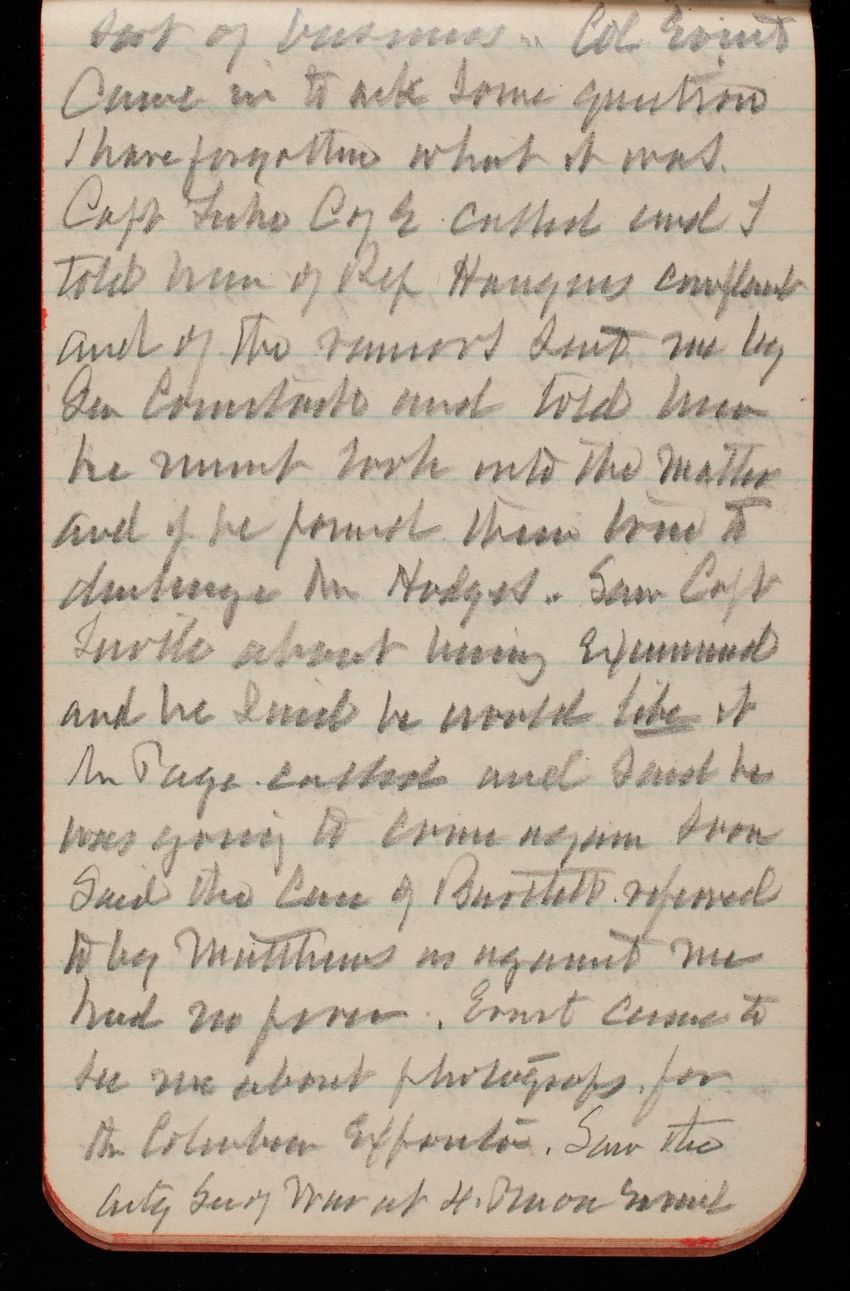 sort of business. Col Ernst
Came in to ask some question
I have forgotten what it was.
Capt Cof E called and I
told him of Rep Haugens complaint
and of the rumors sent me by
Gen Comstock and told him
he must look into the matter
and if he found them true to
discharge Mr Hodges. Saw Capt
Turtle about being Examined
and he said he would like it
Mr Page called and said he
was going to come again soon
Said the Case of Bartlett referred
to by Matthews as against me
had no force. Ernst came to
see me about photogrophs for
the Columbian Exposition. Saw the
actg Sec of War at 4.